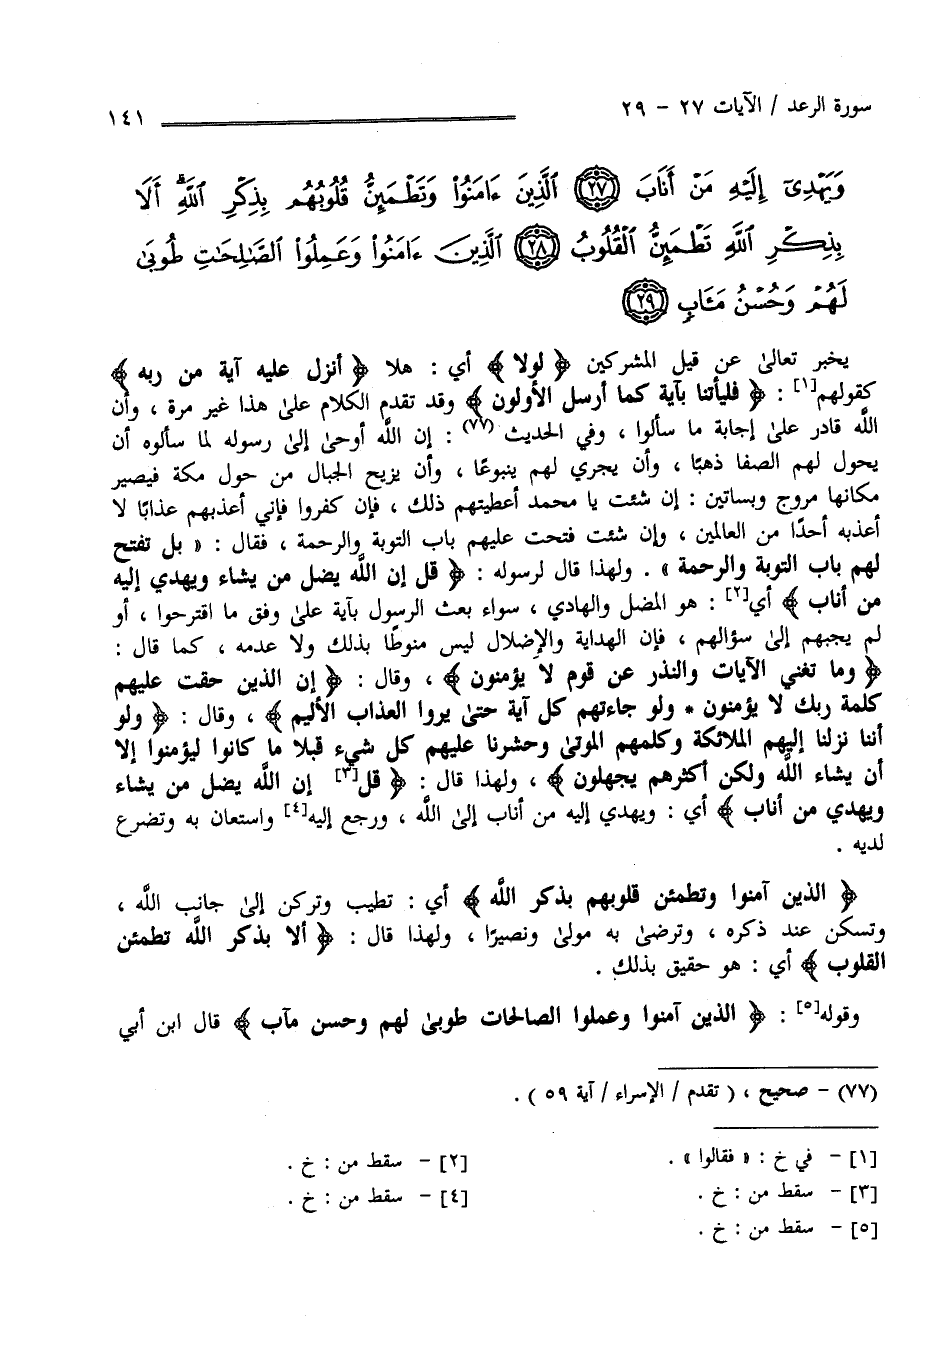 سورة الرعد / الآيات ٢٧ – ٢٩
١٤١
وَيَهْدِىٓ إِلَيْهِ مَنْ أَنَابَ ﴿٢٧﴾ ٱلَّذِينَ ءَامَنُوا۟ وَتَطْمَئِنُّ قُلُوبُهُم بِذِكْرِ ٱللَّهِ ۗ أَلَا
بِذِكْرِ ٱللَّهِ تَطْمَئِنُّ ٱلْقُلُوبُ ﴿٢٨﴾ ٱلَّذِينَ ءَامَنُوا۟ وَعَمِلُوا۟ ٱلصَّـٰلِحَـٰتِ طُوبَىٰ
لَهُمْ وَحُسْنُ مَـَٔابٍ ﴿٢٩﴾
يخبر تعالىٰ عن قيل المشركين ﴿ لولا ﴾ أي : هلا ﴿ أنزل عليه آية من ربه ﴾
كقولهم[١] : ﴿ فليأتنا بآية كما أرسل الأولون ﴾ وقد تقدم الكلام علىٰ هذا غير مرة ، وأن
اللَّه قادر علىٰ إجابة ما سألوا ، وفي الحديث (٧٧) : إن اللَّه أوحىٰ إلىٰ رسوله لما سألوه أن
يحول لهم الصفا ذهبًا ، وأن يجري لهم ينبوعًا ، وأن يزيح الجبال من حول مكة فيصير
مكانها مروج وبساتين : إن شئت يا محمد أعطيتهم ذلك ، فإن كفروا فإني أعذبهم عذابًا لا
أعذبه أحدًا من العالمين ، وإن شئت فتحت عليهم باب التوبة والرحمة ، فقال : « بل تفتح
لهم باب التوبة والرحمة » . ولهذا قال لرسوله : ﴿ قل إن اللَّه يضل من يشاء ويهدي إليه
من أناب ﴾ أي[٢] : هو المضل والهادي ، سواء بعث الرسول بآية علىٰ وفق ما اقترحوا ، أو
لم يجبهم إلىٰ سؤالهم ، فإن الهداية والإضلال ليس منوطًا بذلك ولا عدمه ، كما قال :
﴿ وما تغني الآيات والنذر عن قوم لا يؤمنون ﴾ ، وقال : ﴿ إن الذين حقت عليهم
كلمة ربك لا يؤمنون * ولو جاءتهم كل آية حتىٰ يروا العذاب الأليم ﴾ ، وقال : ﴿ ولو
أننا نزلنا إليهم الملائكة وكلمهم الموتىٰ وحشرنا عليهم كل شيء قبلا ما كانوا ليؤمنوا إلا
أن يشاء اللَّه ولكن أكثرهم يجهلون ﴾ ، ولهذا قال : ﴿ قل[٣] إن اللَّه يضل من يشاء
ويهدي من أناب ﴾ أي : ويهدي إليه من أناب إلىٰ اللَّه ، ورجع إليه[٤] واستعان به وتضرع
لديه .
﴿ الذين آمنوا وتطمئن قلوبهم بذكر اللَّه ﴾ أي : تطيب وتركن إلىٰ جانب اللَّه ،
وتسكن عند ذكره ، وترضىٰ به مولىٰ ونصيرًا ، ولهذا قال : ﴿ ألا بذكر اللَّه تطمئن
القلوب ﴾ أي : هو حقيق بذلك .
وقوله[٥] : ﴿ الذين آمنوا وعملوا الصالحات طوبىٰ لهم وحسن مآب ﴾ قال ابن أبي
(٧٧) – صحيح ، ( تقدم / الإسراء / آية ٥٩ ) .
[١] – في خ : « فقالوا » .
[٢] – سقط من : خ .
[٣] – سقط من : خ .
[٤] – سقط من : خ .
[٥] – سقط من : خ .